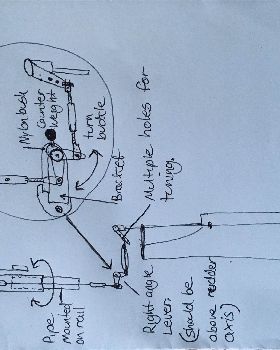 Nylon bush
Counter
weight
turn
buckle
Bracket
Multiple holes for
tuning.
Pipe
mounted
on rail
Right angle
Lever.
(should be
above rudder
axis)